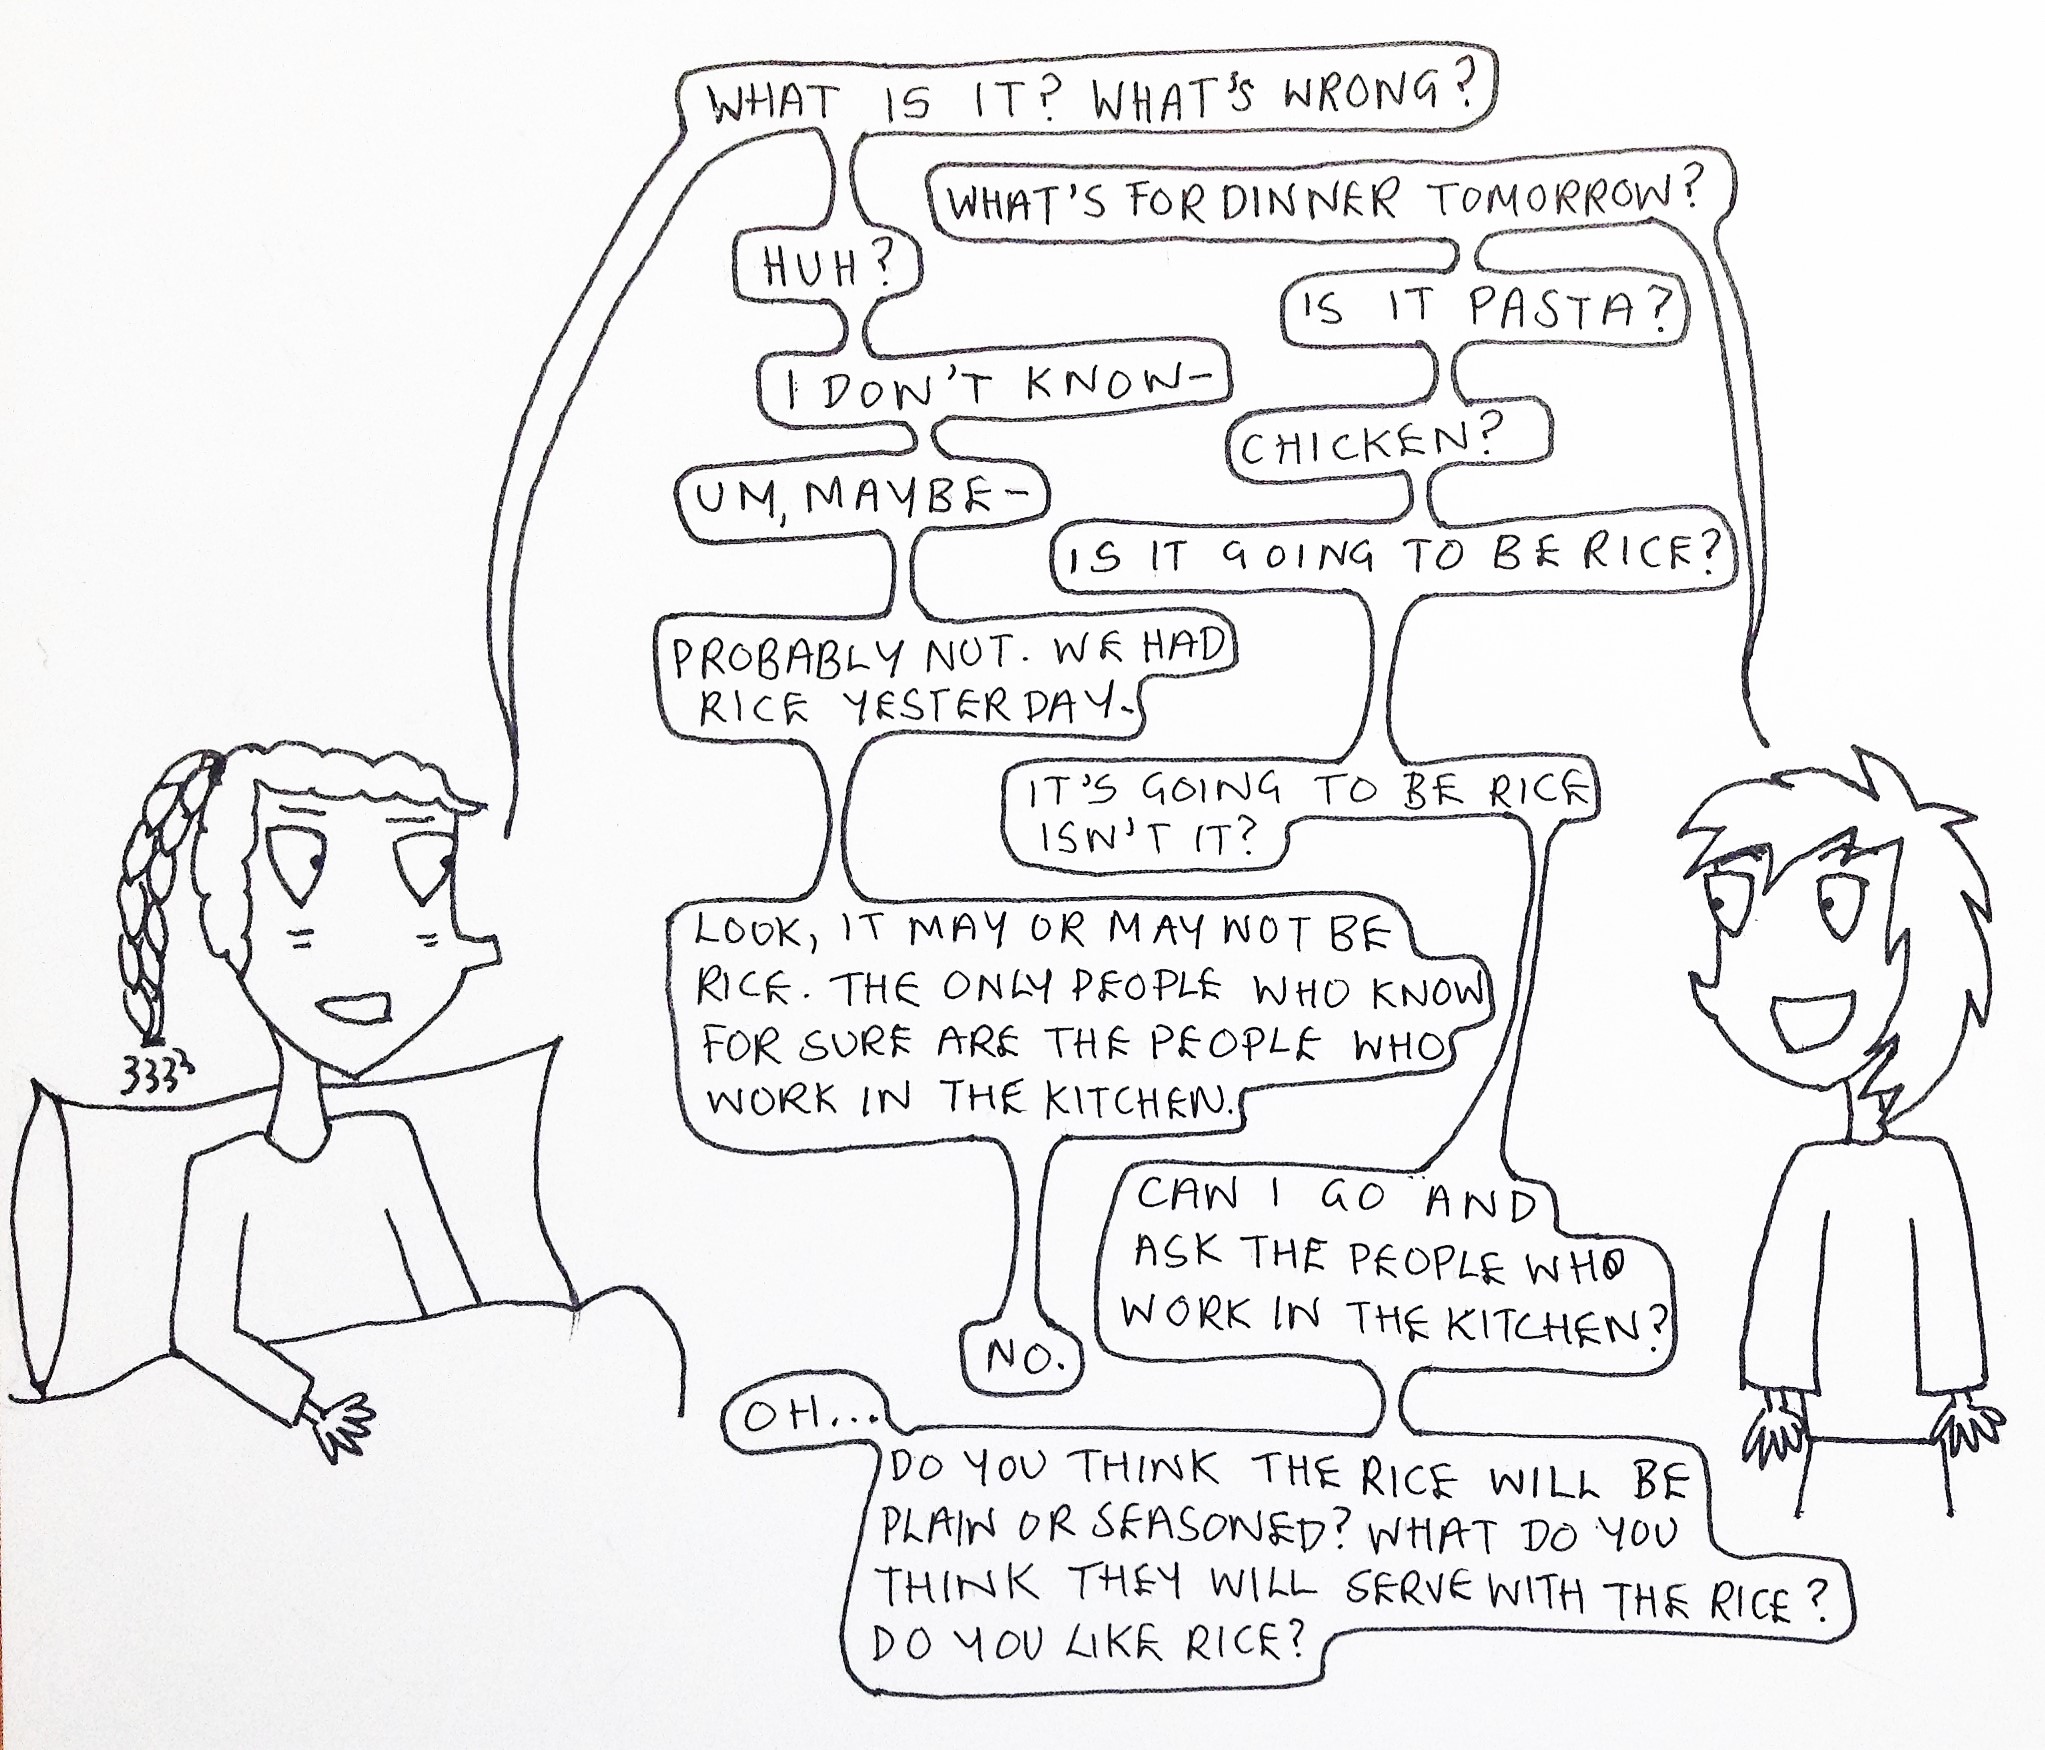 WHAT IS IT? WHAT'S WRONG?
WHAT'S FOR DINNER TOMORROW?
HUH?
IS IT PASTA?
I DON'T KNOW-
CHICKEN?
UM, MAYBE-
IS IT GOING TO BE RICE?
PROBABLY NOT. WE HAD
RICE YESTERDAY.
IT'S GOING TO BE RICE
ISN'T IT?
LOOK, IT MAY OR MAY NOT BE
RICE. THE ONLY PEOPLE WHO KNOW
FOR SURE ARE THE PEOPLE WHO
WORK IN THE KITCHEN.
CAN I GO AND
ASK THE PEOPLE WHO
WORK IN THE KITCHEN?
NO.
OH...
DO YOU THINK THE RICE WILL BE
PLAIN OR SEASONED? WHAT DO YOU
THINK THEY WILL SERVE WITH THE RICE?
DO YOU LIKE RICE?